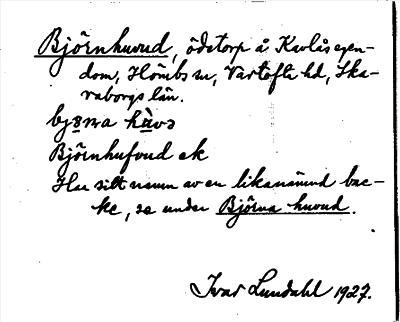 Björnhuvud, ödetorp å Kavlåsegen-
dom, Hömbs sn, Vartofta hd, Ska-
raborgs län.
Björnhufvud ek
Har sitt namn av en likanämnd bac-
ke, se under Björna huvud.
Ivar Lundahl 1927.